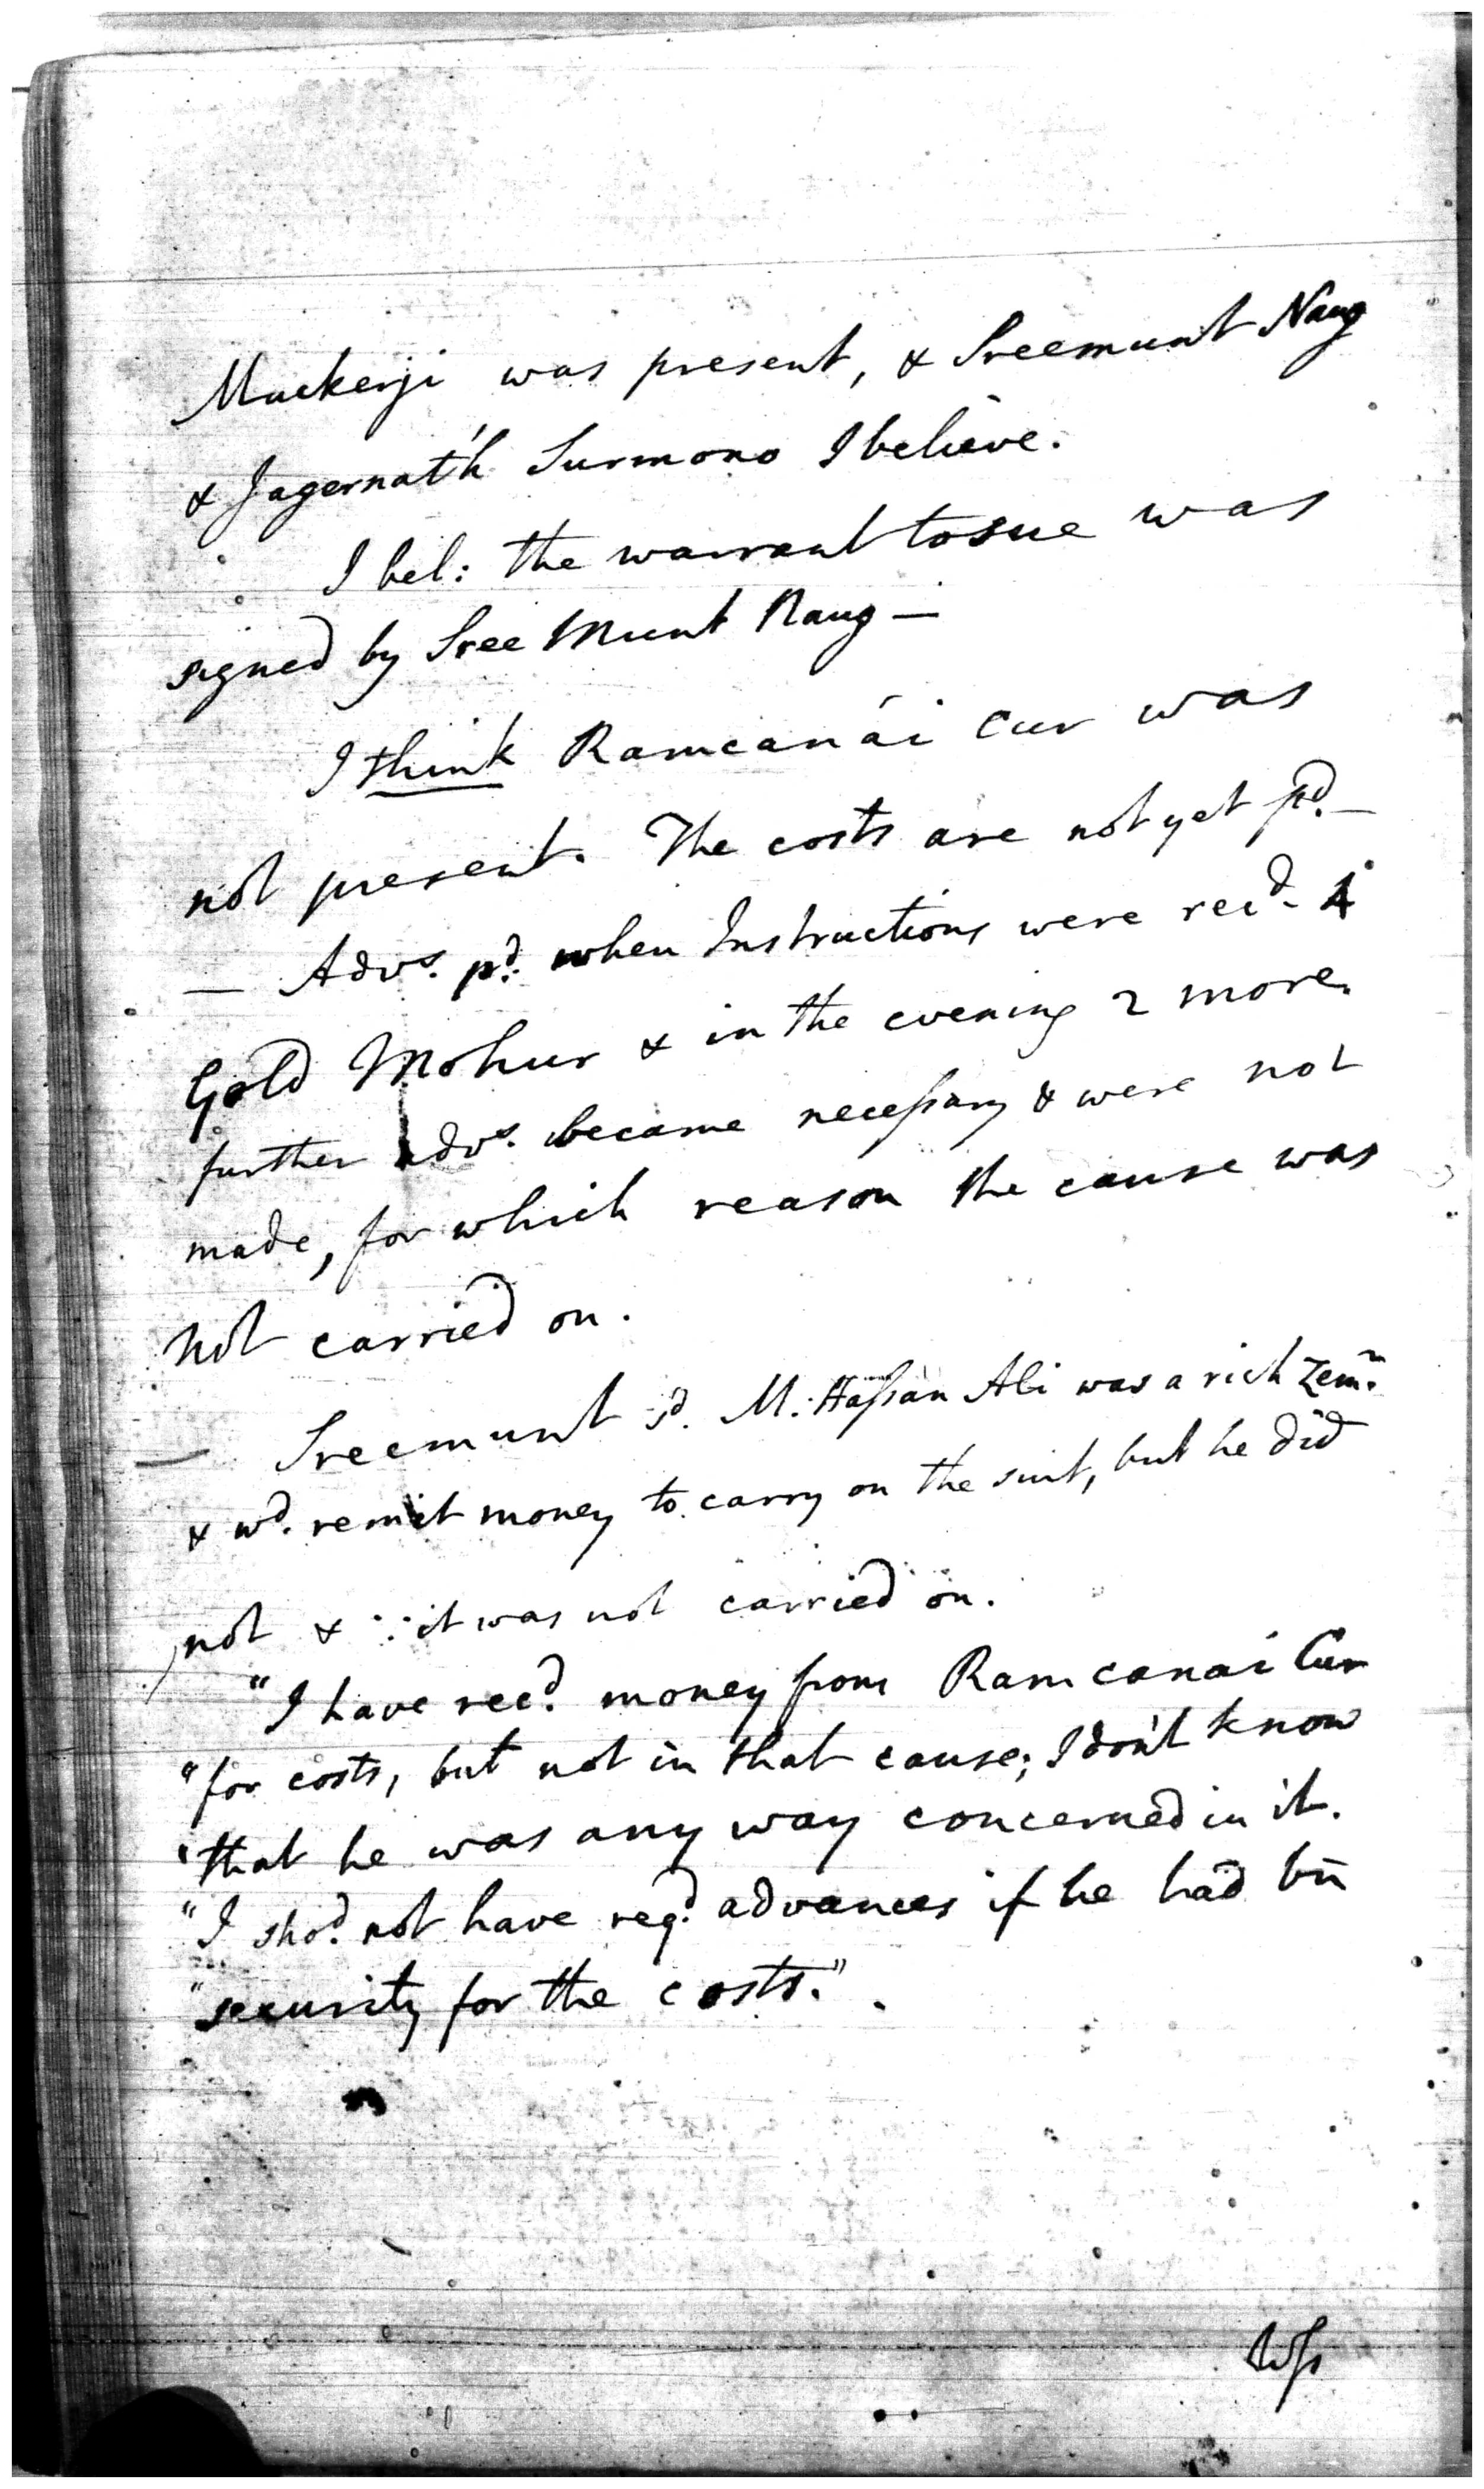 Muckerji was present, & Sreemunt Naug
& Jagernat'h Surmono I believe.
I bel: the warrant to sue was
signed by Sree Munt Naug —
I think Ramcanái Cur was
not present. The costs are not yet pd. —
— Advs. pd. when Instructions were recd. 4
Gold Mohur & in the evening 2 more.
further advs. became necessary & were not
made, for which reason the cause was
not carried on.
— Sreemunt sd. M. Hassan Ali was a rich Zemr.
& wd. remit money to carry on the suit, but he did
not & ∵ it was not carried on.
"I have recd. money from Ramcanai Cur
"for costs, but not in that cause; I don't know
"that he was any way concerned in it.
"I shod. not have reqd. advances if he had bn
"security for the costs."
Wss